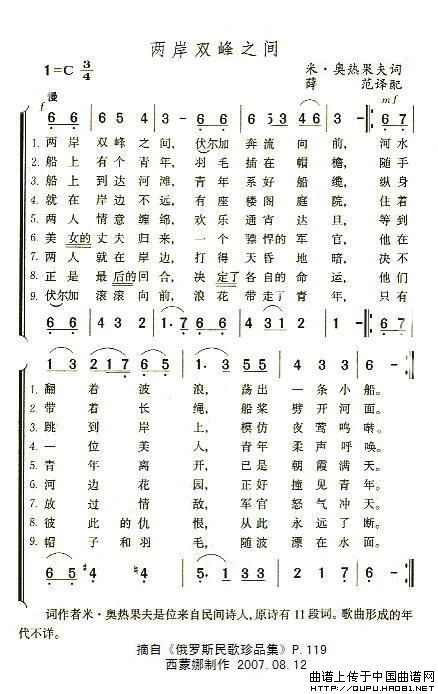 两岸双峰之间
1=C 3/4
米·奥热果夫词
薛 范译配
慢
f
mf
6 6 | 6 5 4 | 3 - | 6 6 | 6 5 6 | 6 3 4 6 | 3 - :‖: 6 7 |
1. 两岸 双峰之间, 伏尔加 奔流向前, 河水
2. 船上 有个青年, 羽毛 插在帽檐, 随手
3. 船上 到达河滩, 青年 系好船缆, 纵身
4. 就在 岸边不远, 有座 楼阁庭院, 住着
5. 两人 情意缠绵, 欢乐 通宵达旦, 等到
6. 美女的 丈夫归来, 一个 骠悍的军官, 他在
7. 两人 就在岸边, 打得 天昏地暗, 决不
8. 正是 最后的回合, 决定了 各自的命运, 他们
9. 伏尔加 滚滚向前, 浪花 带走了青年, 只有
6 6 | 4 3 2 | 1·7 6 6 | 6 5 6 | 4 3 2 | 3 - :‖: 6 7 |
1 3 | 2 1 7 6 | 6 - | 1·3 | 5 5 4 | 4 2 3 | 6 - :‖
1. 翻着波浪, 荡出一条小船。
2. 带着长绳, 船桨劈开河面。
3. 跳到岸上, 模仿夜莺鸣啭。
4. 一位美人, 青年柔声呼唤。
5. 青年离开, 已是朝霞满天。
6. 河边花园, 正好撞见青年。
7. 放过情敌, 军官怒气冲天。
8. 彼此的仇恨, 从此永远了断。
9. 帽子和羽毛, 随波漂在水面。
词作者米·奥热果夫是位来自民间诗人,原诗有11段词。歌曲形成的年
代不详。
摘自《俄罗斯民歌珍品集》P.119
西蒙娜制作 2007.08.12
曲谱上传于中国曲谱网
HTTP://QUPU.HAO81.NET